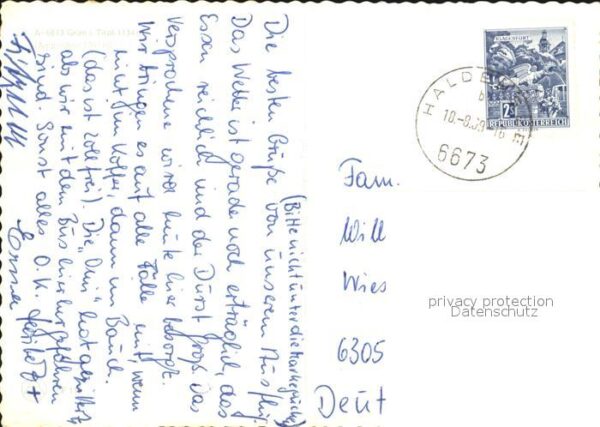 A-6673 Grän i. Tirol 1134
Die besten Grüße von unserem Ausflug
(Bitte nicht unter die Marke gucken)
Das Wetter ist gerade noch erträglich, das
Essen reichlich und der Durst groß. Das
Versprochene wird heute hier besorgt.
Wir bringen es auf alle Fälle mit, wenn
nicht im Koffer, dann im Bauch.
(das ist zollfrei). Die "Omi" hat gezittert,
als wir mit dem Bus hierhergefahren
sind. Sonst alles O.K.
KLAGENFURT
2S
REPUBLIK ÖSTERREICH
HALDENSEE
10.-8.69-16
6673
Fam.
Will
Wies
6305
Deut
privacy protection
Datenschutz